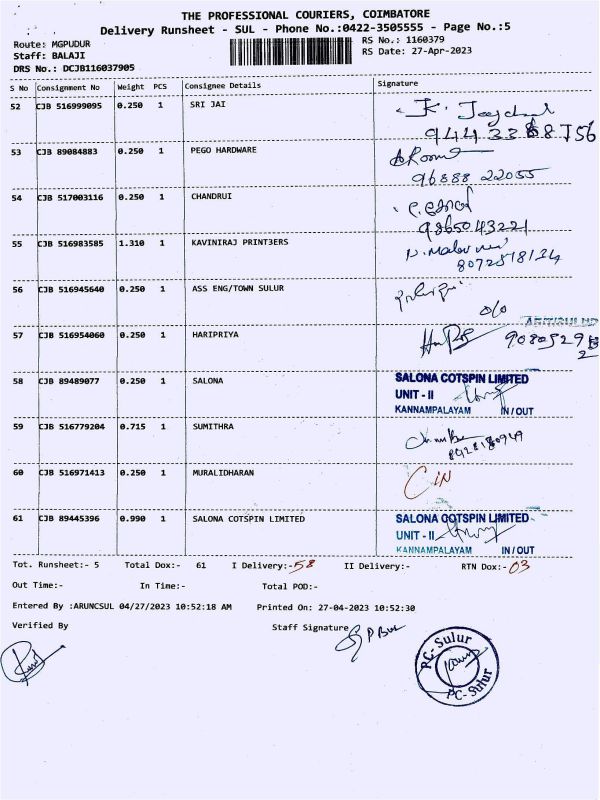 THE PROFESSIONAL COURIERS, COIMBATORE
Delivery Runsheet - SUL - Phone No.:0422-3505555 - Page No.:5
Route: MGPUDUR
RS No.: 1160379
Staff: BALAJI
RS Date: 27-Apr-2023
DRS No.: DCJB116037905
S No Consignment No Weight PCS Consignee Details Signature
52 CJB 516999095 0.250 1 SRI JAI
53 CJB 89084883 0.250 1 PEGO HARDWARE
96888 22055
54 CJB 517003116 0.250 1 CHANDRUI
9865043221
55 CJB 516983585 1.310 1 KAVINIRAJ PRINT3ERS
8072518134
56 CJB 516945640 0.250 1 ASS ENG/TOWN SULUR
57 CJB 516954060 0.250 1 HARIPRIYA
58 CJB 89489077 0.250 1 SALONA SALONA COTSPIN LIMITED
UNIT - II
KANNAMPALAYAM IN / OUT
59 CJB 516779204 0.715 1 SUMITHRA
60 CJB 516971413 0.250 1 MURALIDHARAN
61 CJB 89445396 0.990 1 SALONA COTSPIN LIMITED SALONA COTSPIN LIMITED
UNIT - II
KANNAMPALAYAM IN / OUT
Tot. Runsheet:- 5 Total Dox:- 61 I Delivery:-58 II Delivery:- RTN Dox:-03
Out Time:- In Time:- Total POD:-
Entered By :ARUNCSUL 04/27/2023 10:52:18 AM Printed On: 27-04-2023 10:52:30
Verified By Staff Signature
PC-Sulur
PC-Sulur